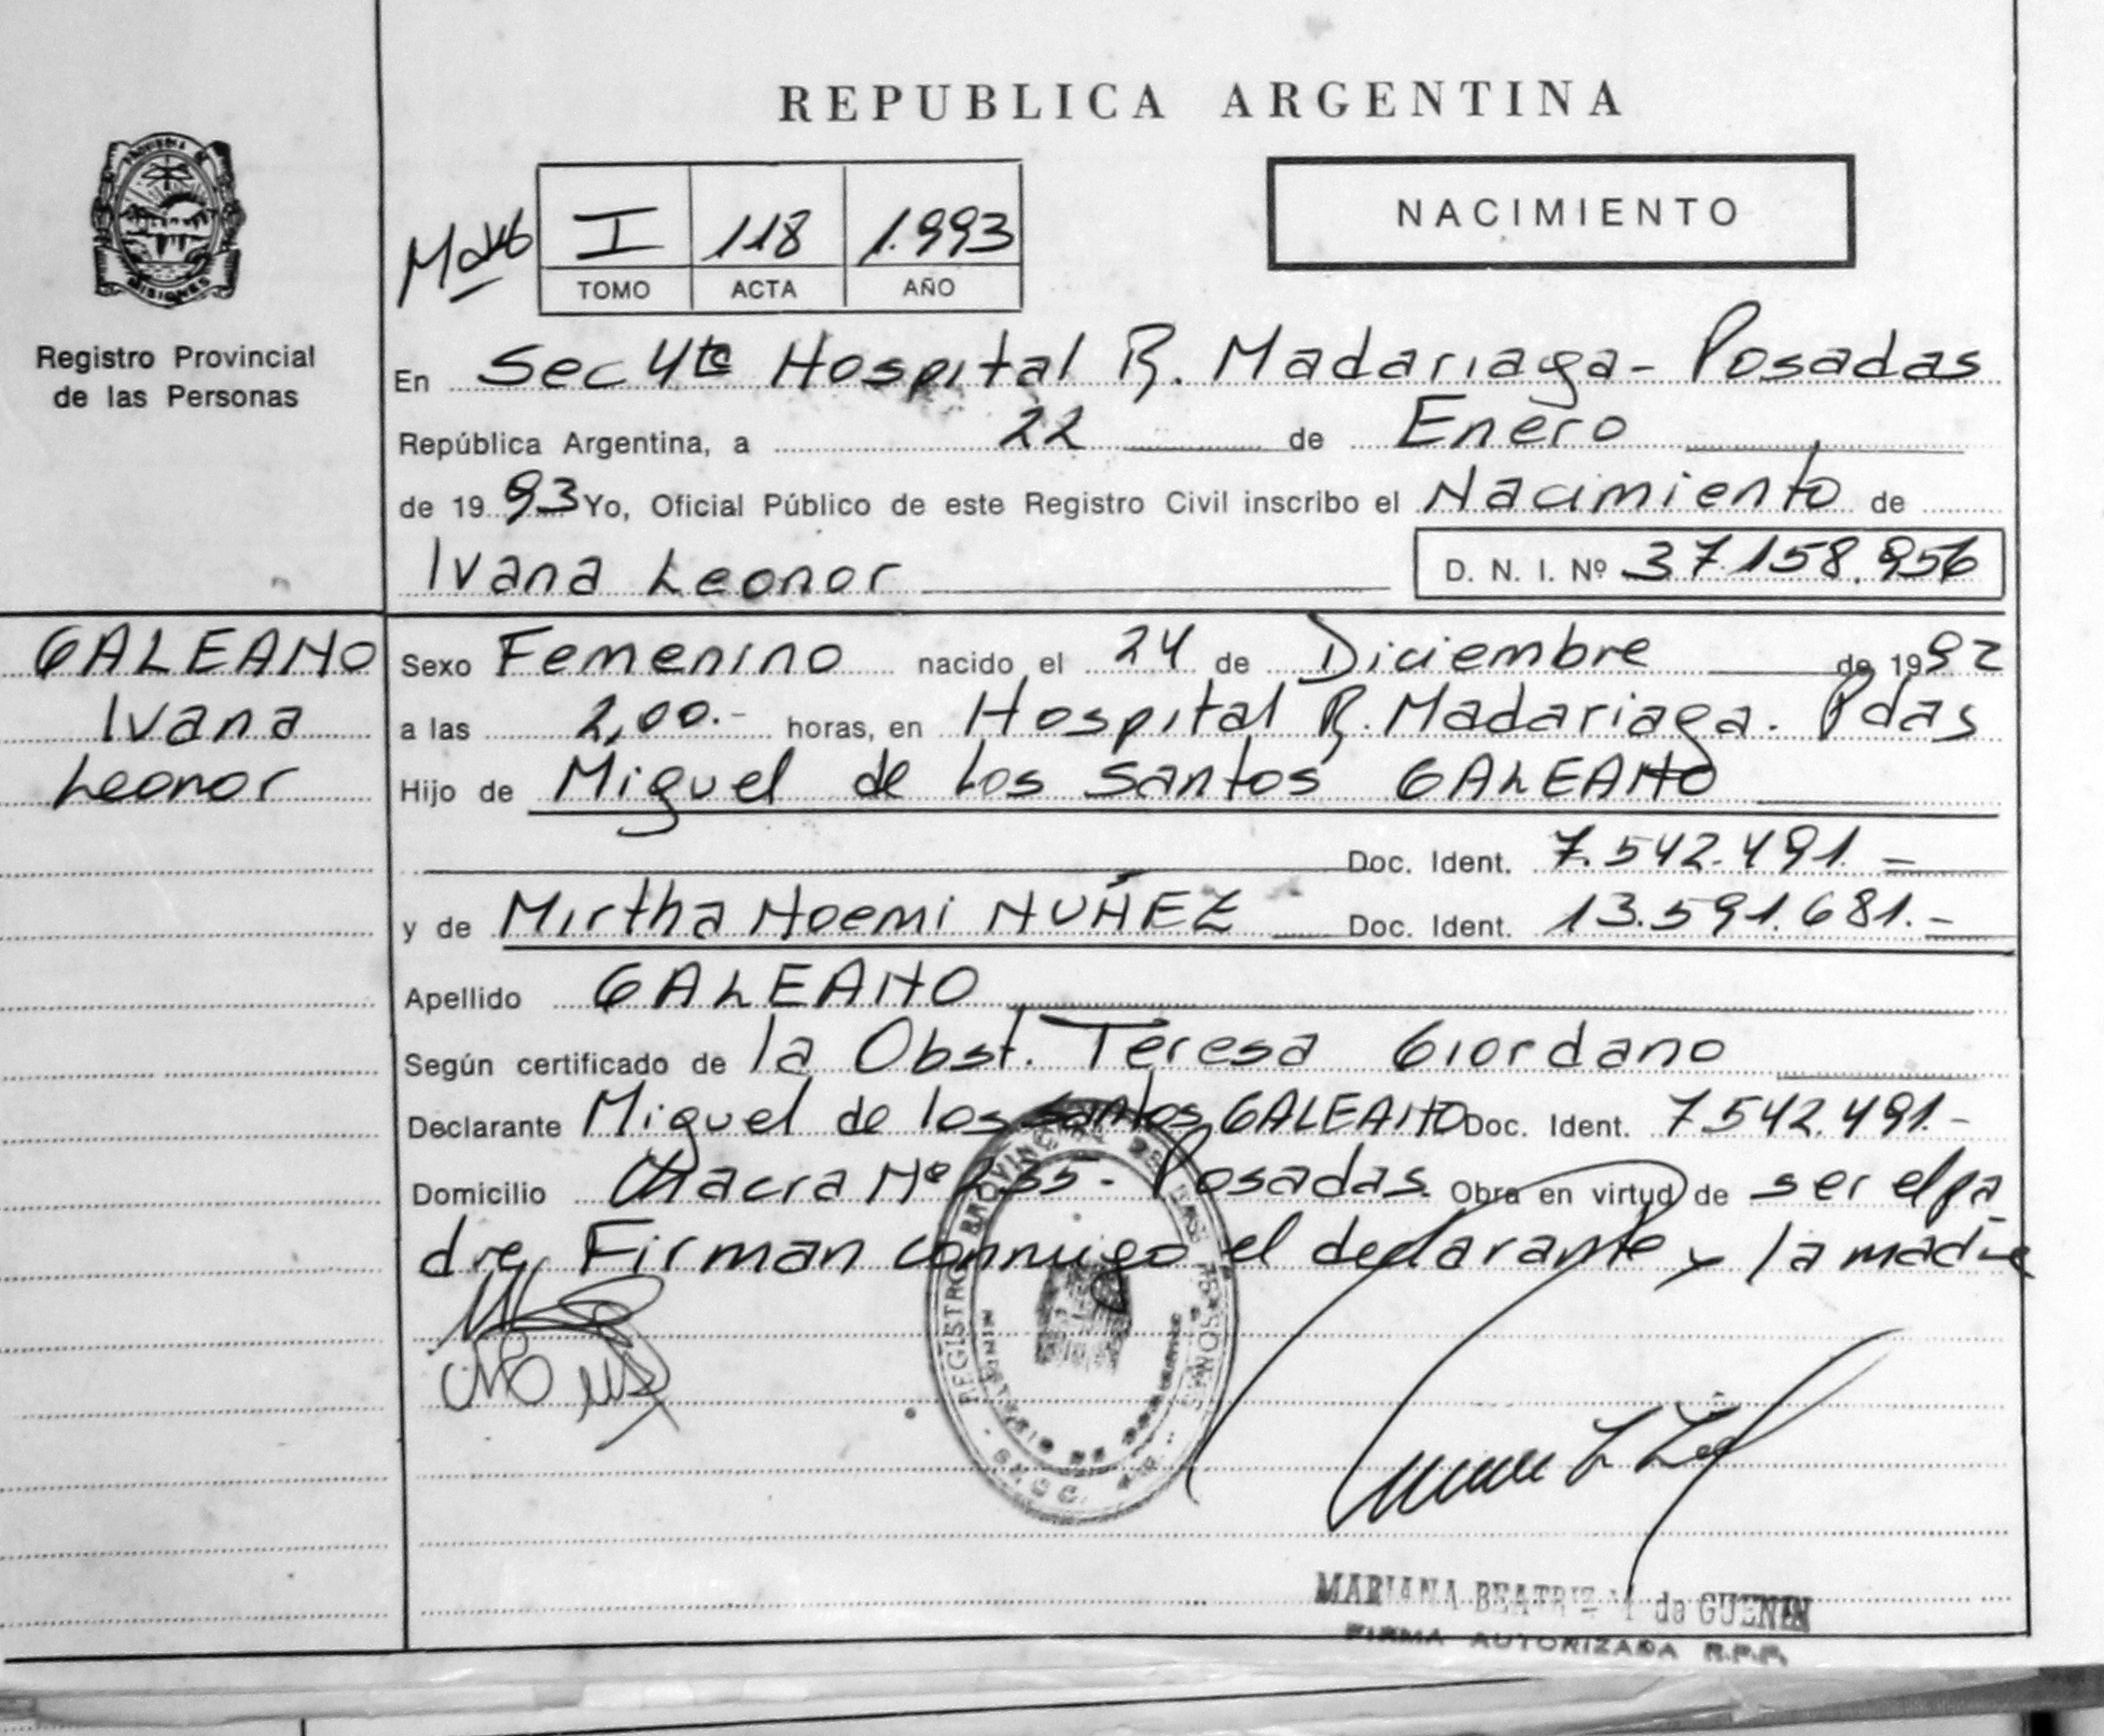 REPUBLICA ARGENTINA
NACIMIENTO
I 118 1.993
TOMO ACTA AÑO
MISIONES
Registro Provincial
de las Personas
En Sec 4ta Hospital R. Madariaga - Posadas
República Argentina, a 22 de Enero
de 1993 Yo, Oficial Público de este Registro Civil inscribo el Nacimiento de
Ivana Leonor D. N. I. Nº 37.158.956
GALEANO
Ivana
Leonor
Sexo Femenino nacido el 24 de Diciembre de 1992
a las 2,00.- horas, en Hospital R. Madariaga. Pdas
Hijo de Miguel de los Santos GALEANO
Doc. Ident. 7.542.491.-
y de Mirtha Noemi NUÑEZ Doc. Ident. 13.591.681.-
Apellido GALEANO
Según certificado de la Obst. Teresa Giordano
Declarante Miguel de los Santos GALEANO Doc. Ident. 7.542.491.-
Domicilio Chacra Nº 235 - Posadas. Obra en virtud de ser el pa
dre, Firman conmigo el declarante y la madre
REGISTRO PROVINCIAL DE LAS PERSONAS
MINISTERIO DE GOBIERNO
MARIANA BEATRIZ M de GUENIN
FIRMA AUTORIZADA R.P.P.